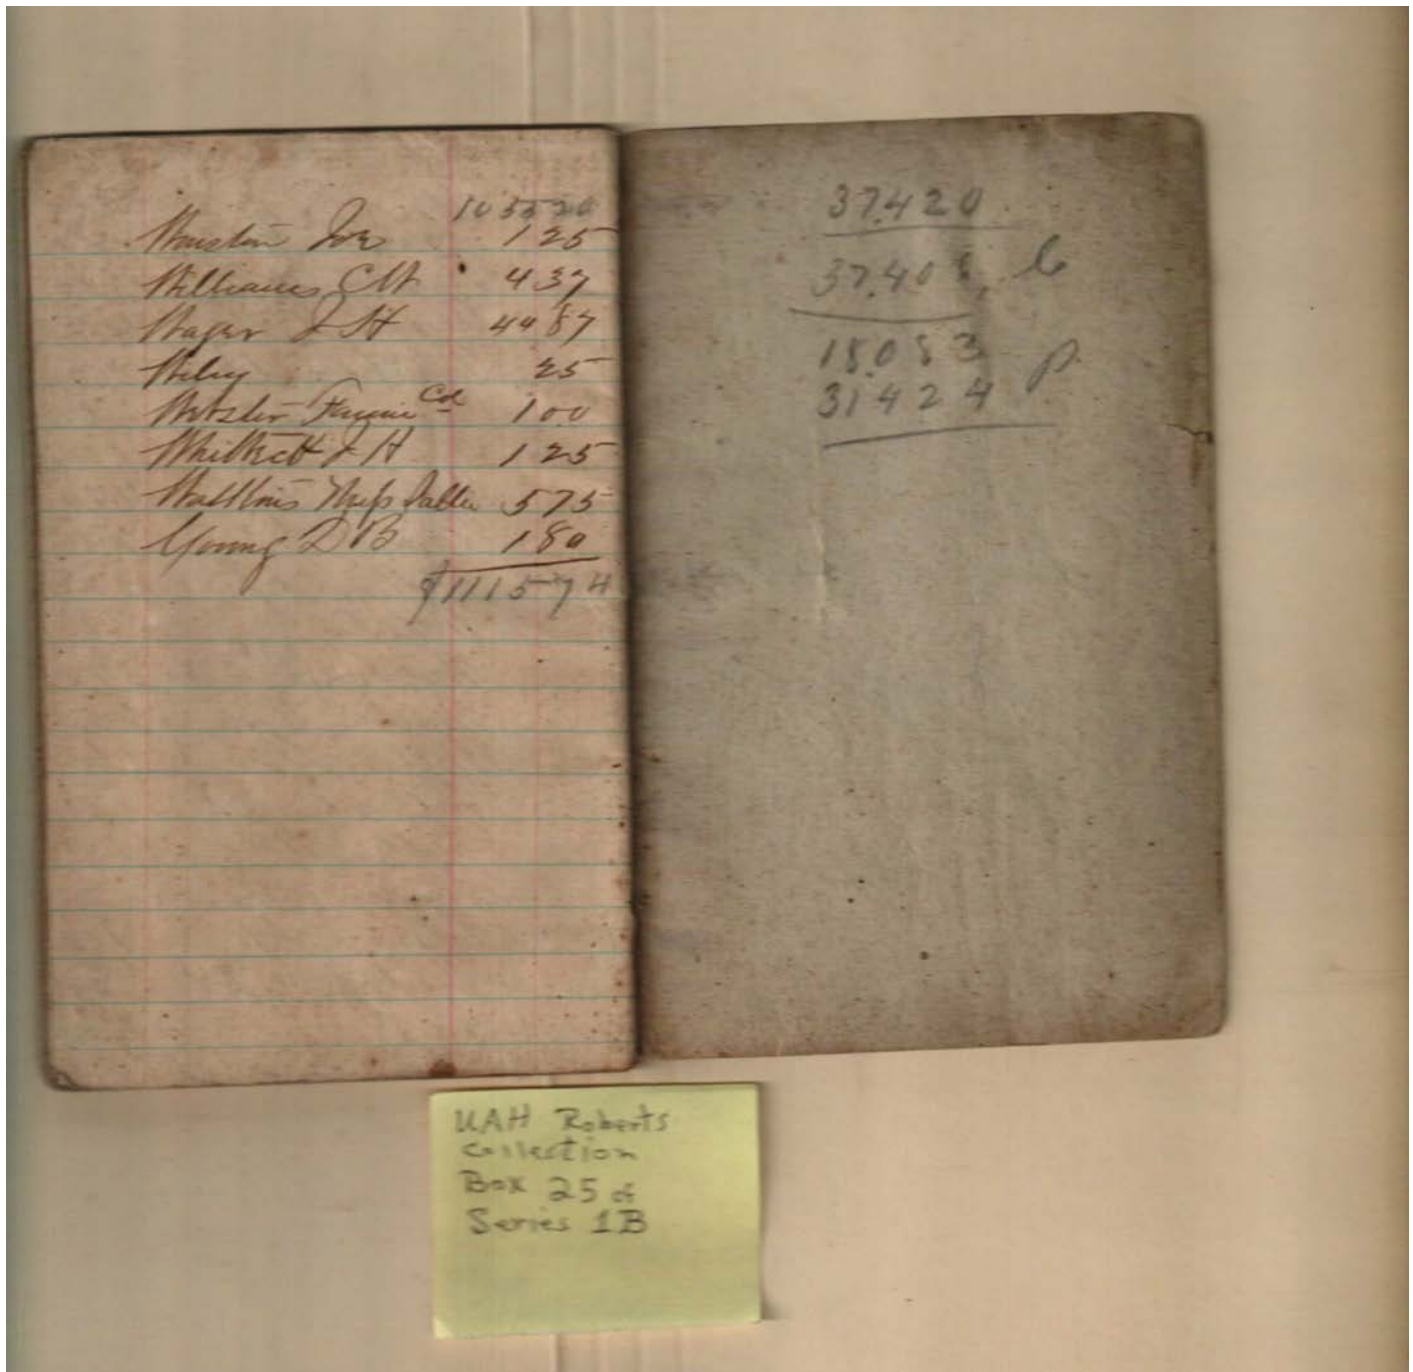 105520
Joe 125
Williams 437
Wager J H 4487
Wiley 25
Fannie Col 100
J H 125
Watkins Miss Sallie 575
Young D B 180
$111574
37.420
37.408
18.083
31424 p
UAH Roberts
collection
Box 25 of
Series 1B